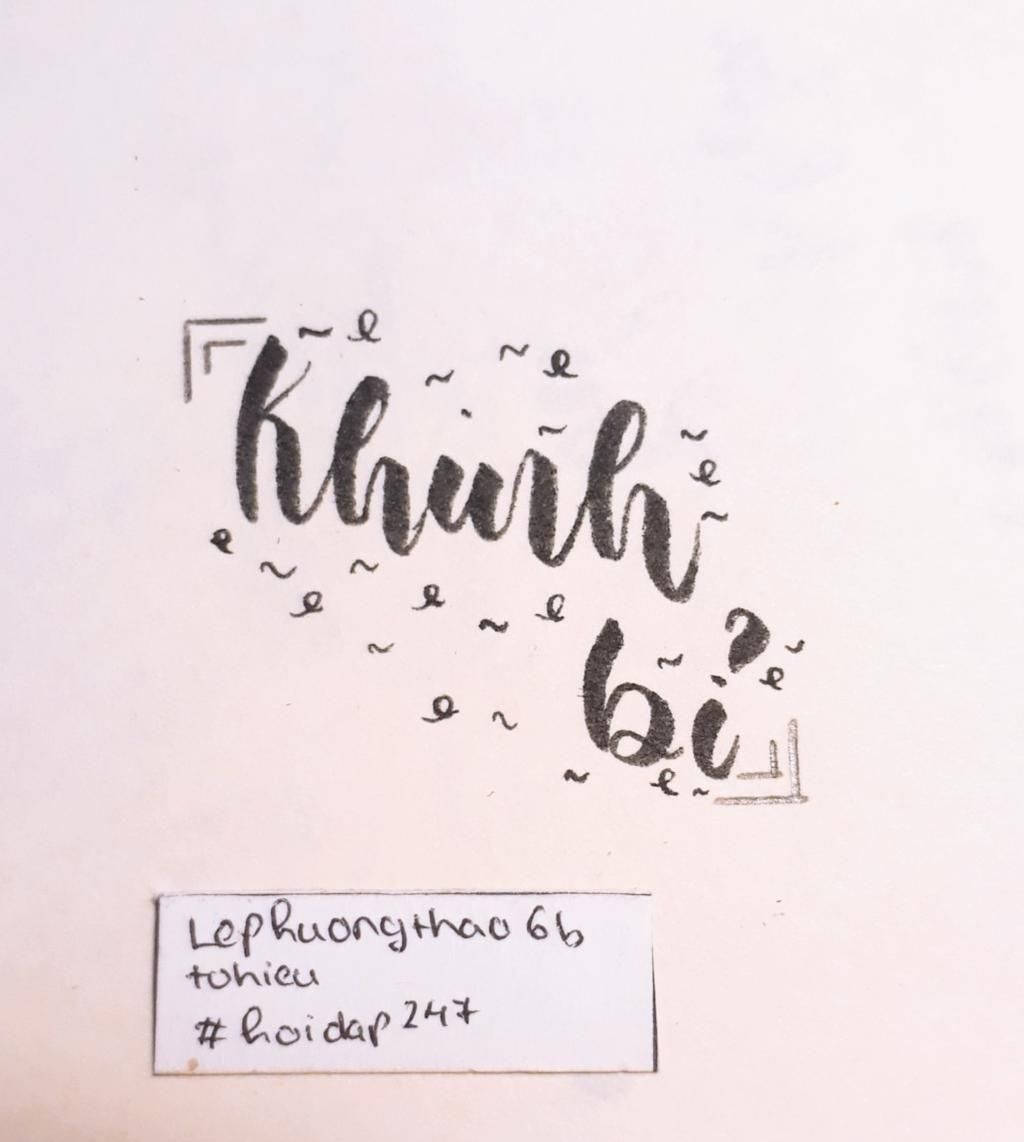 Khinh
bỉ
Lephuongthao6b
tohieu
#hoidap247